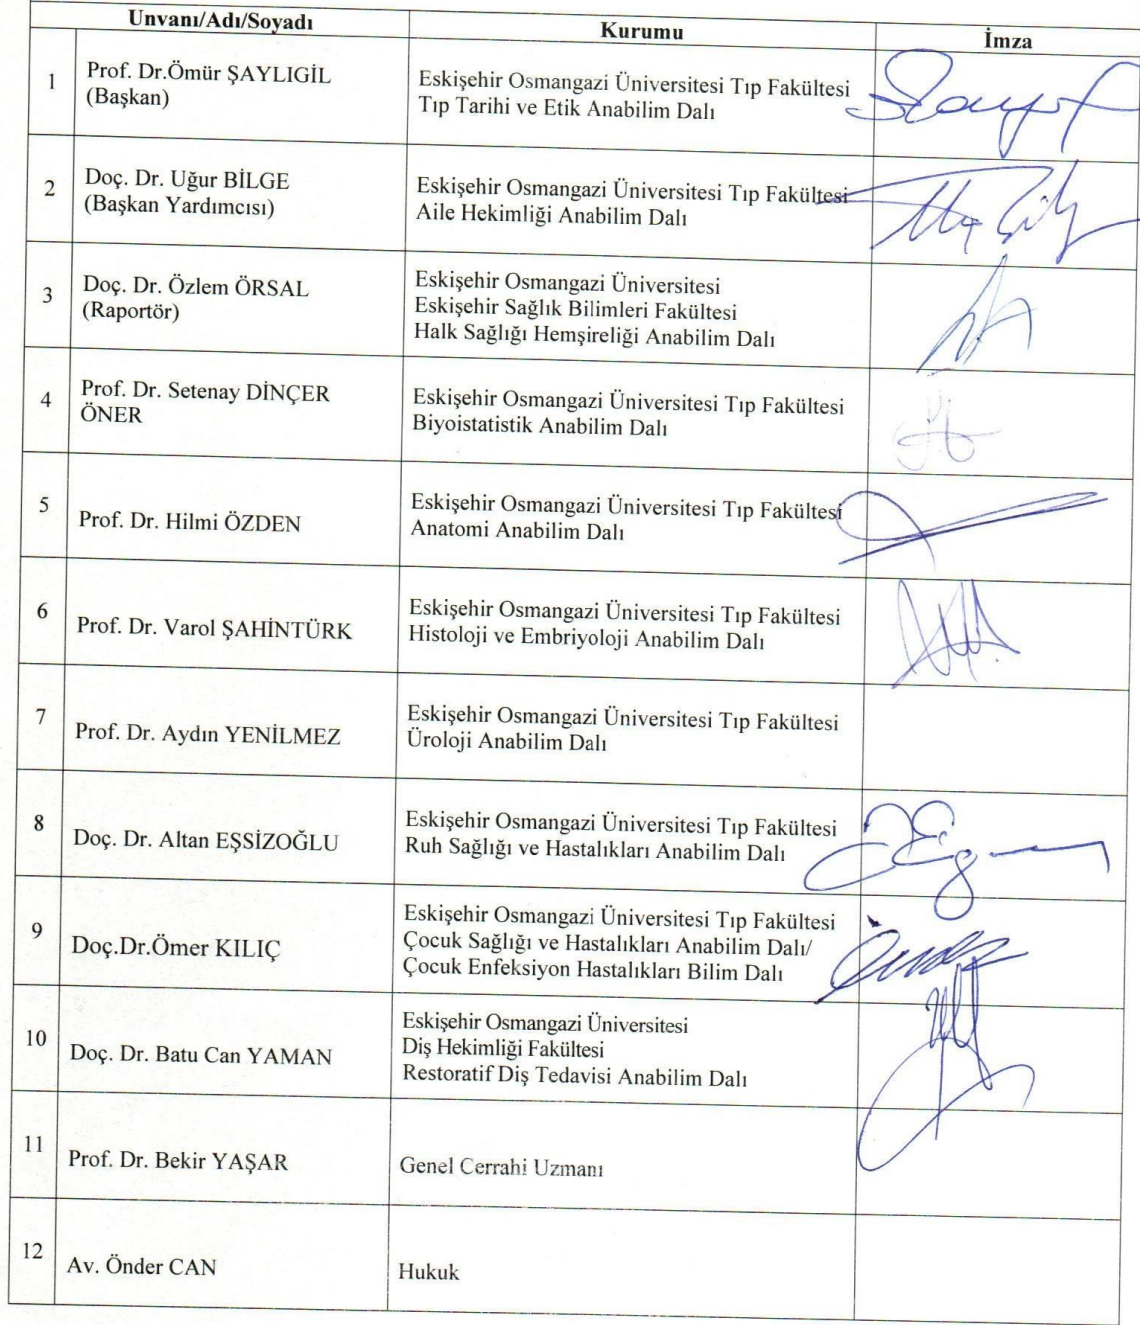 Unvanı/Adı/Soyadı Kurumu İmza
1 Prof. Dr.Ömür ŞAYLIGİL
(Başkan)
Eskişehir Osmangazi Üniversitesi Tıp Fakültesi
Tıp Tarihi ve Etik Anabilim Dalı
2 Doç. Dr. Uğur BİLGE
(Başkan Yardımcısı)
Eskişehir Osmangazi Üniversitesi Tıp Fakültesi
Aile Hekimliği Anabilim Dalı
3 Doç. Dr. Özlem ÖRSAL
(Raportör)
Eskişehir Osmangazi Üniversitesi
Eskişehir Sağlık Bilimleri Fakültesi
Halk Sağlığı Hemşireliği Anabilim Dalı
4 Prof. Dr. Setenay DİNÇER
ÖNER
Eskişehir Osmangazi Üniversitesi Tıp Fakültesi
Biyoistatistik Anabilim Dalı
5 Prof. Dr. Hilmi ÖZDEN
Eskişehir Osmangazi Üniversitesi Tıp Fakültesi
Anatomi Anabilim Dalı
6 Prof. Dr. Varol ŞAHİNTÜRK
Eskişehir Osmangazi Üniversitesi Tıp Fakültesi
Histoloji ve Embriyoloji Anabilim Dalı
7 Prof. Dr. Aydın YENİLMEZ
Eskişehir Osmangazi Üniversitesi Tıp Fakültesi
Üroloji Anabilim Dalı
8 Doç. Dr. Altan EŞSİZOĞLU
Eskişehir Osmangazi Üniversitesi Tıp Fakültesi
Ruh Sağlığı ve Hastalıkları Anabilim Dalı
9 Doç.Dr.Ömer KILIÇ
Eskişehir Osmangazi Üniversitesi Tıp Fakültesi
Çocuk Sağlığı ve Hastalıkları Anabilim Dalı/
Çocuk Enfeksiyon Hastalıkları Bilim Dalı
10 Doç. Dr. Batu Can YAMAN
Eskişehir Osmangazi Üniversitesi
Diş Hekimliği Fakültesi
Restoratif Diş Tedavisi Anabilim Dalı
11 Prof. Dr. Bekir YAŞAR
Genel Cerrahi Uzmanı
12 Av. Önder CAN
Hukuk